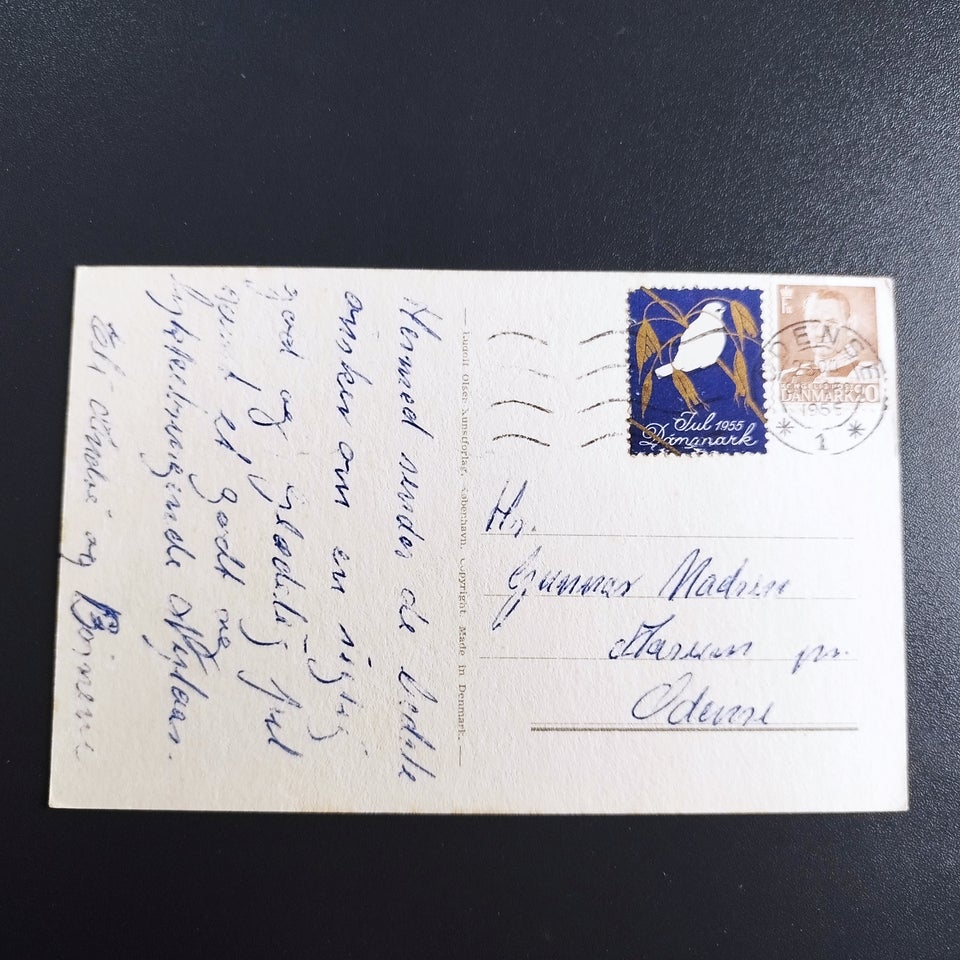 Hermed sendes de bedste
ønsker om en rigtig
god og Glædelig jul
samt et godt og
lykkebringende Nytaar.
og Börnene
Rudolf Olsens Kunstforlag, København. Copyright. Made in Denmark.
Jul 1955
Danmark
DANMARK 20
ODENSE
1955
1
Hr.
Gunnar Madsen
pr.
Odense